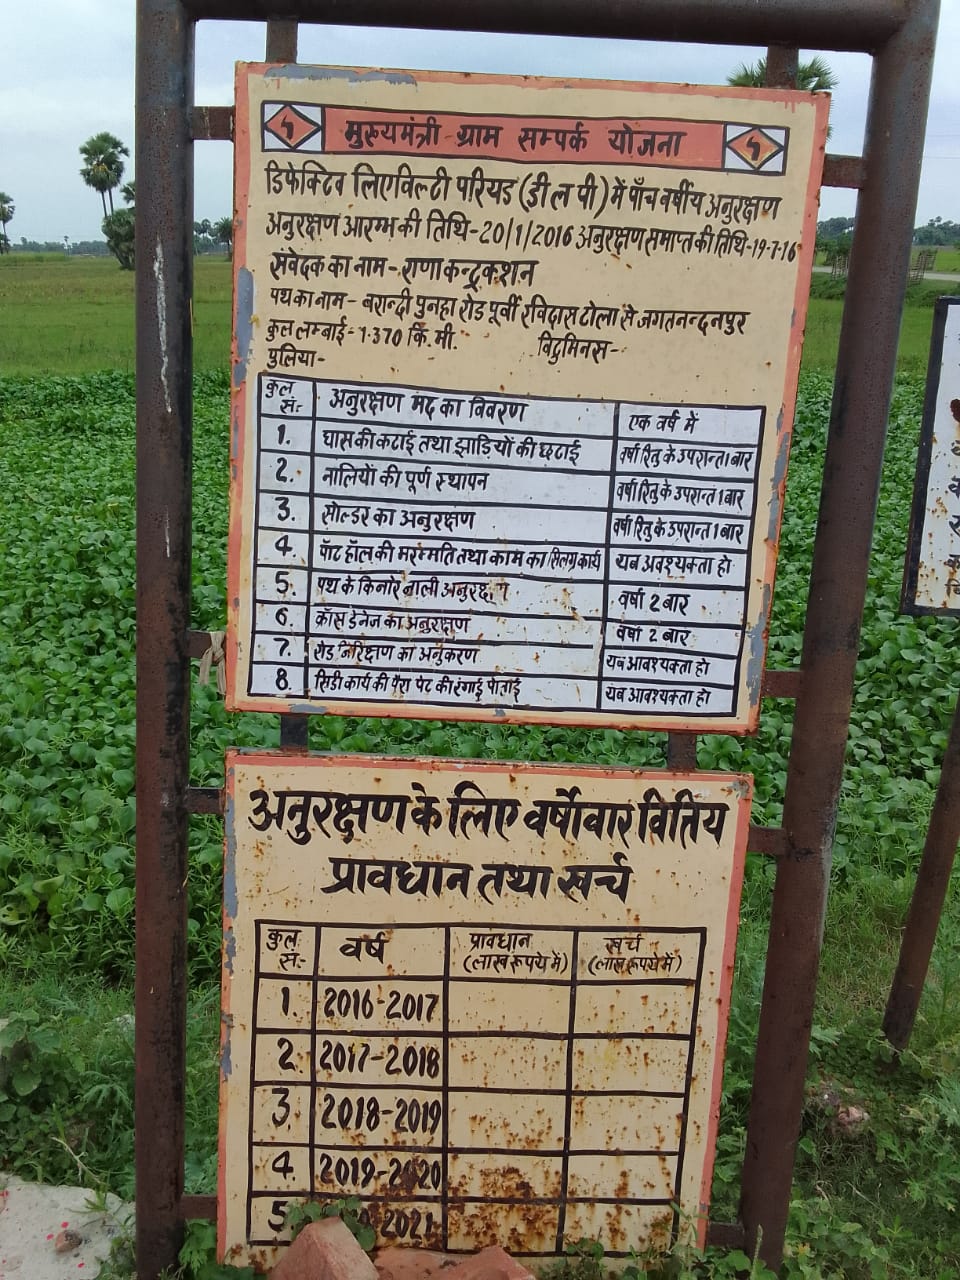 मुख्यमंत्री ग्राम सम्पर्क योजना
डिफेक्टिव लिएविल्टी परियड (डी ल पी) में पाँच वर्षीय अनुरक्षण
अनुरक्षण आरम्भ की तिथि-20/1/2016 अनुरक्षण समाप्त की तिथि-19-7-16
संवेदक का नाम- राणा कन्ट्रकशन
पथ का नाम- बरान्दी पुनहा रोड पूर्वी रविदास टोला से जगतनन्दनपुर
कुल लम्बाई- 1.370 कि.मी. विटुमिनस-
पुलिया-
कुल सं:- अनुरक्षण मद का विवरण एक वर्ष में
1. घास की कटाई तथा झाड़ियों की छटाई वर्षा रितु के उपरान्त 1 बार
2. नालियों की पूर्ण स्थापन वर्षा रितु के उपरान्त 1 बार
3. सोल्डर का अनुरक्षण वर्षा रितु के उपरान्त 1 बार
4. पॉट हॉल की मरम्मति तथा काम का सिलग कार्य यब अवश्यक्ता हो
5. पथ के किनोर नाली वर्षा 2 बार
6. क्रॉस ड्रेनेज का अनुरक्षण वर्षा 2 बार
7. रोड निरिक्षण का अनुकरण यब आवश्यक्ता हो
8. सिडी कार्य की पैरा पेट की रंगाई पोताई यब आवश्यक्ता हो
अनुरक्षण के लिए वर्षोवार वितिय
प्रावधान तथा खर्च
कुल सं:- वर्ष प्रावधान (लाख रूपये में) खर्च (लाख रूपये में)
1. 2016-2017
2. 2017-2018
3. 2018-2019
4. 2019-2020
5. 2021